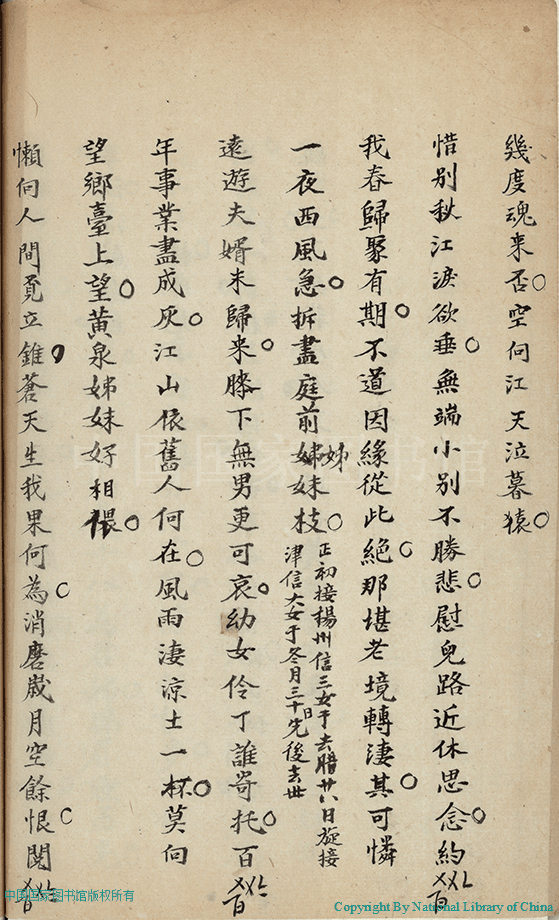 幾度魂来否空向江天泣暮猿
惜别秋江淚欲垂無端小别不勝悲慰兒路近休思念約
我春歸聚有期不道因緣從此絕那堪老境轉淒其可憐
一夜西風急拆盡庭前姊妹枝
姊
正初接楊州信三女于去腊廿八日旋接
津信大女于冬月三十日先後去世
遠遊夫婿未歸来膝下無男更可哀幼女伶丁誰寄托百
年事業盡成灰江山依舊人何在風雨淒涼土一抔莫向
望鄉臺上望黃泉姊妹好相偎
懶向人間覓立錐蒼天生我果何為消磨歲月空餘恨閱
中国国家图书馆
中国国家图书馆版权所有
Copyright By National Library of China